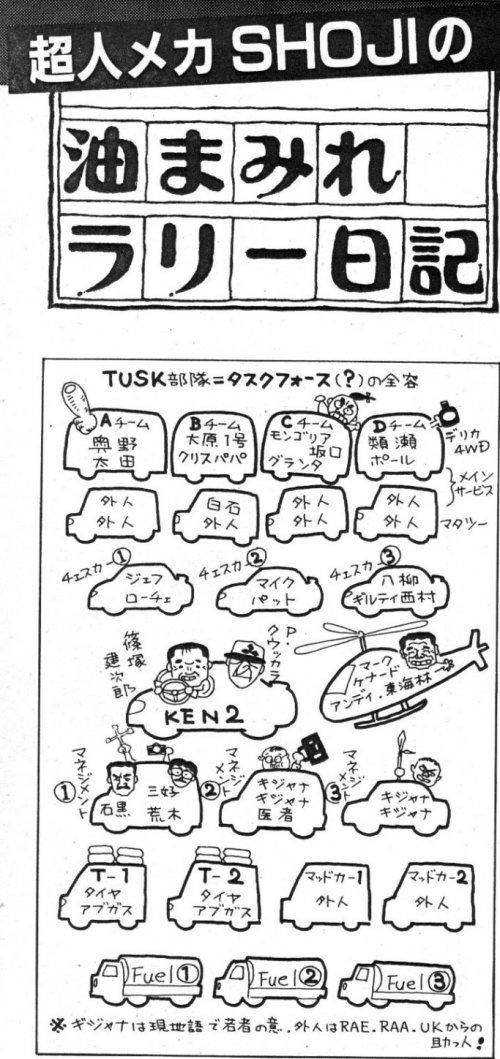 超人メカSHOJIの
油まみれ
ラリー日記
TUSK部隊=タスクフォース(?)の全容
Aチーム
奥野
太田
Bチーム
大原1号
クリスパパ
Cチーム
モンゴリア
坂口
グランタ
Dチーム
類瀬
ポール
デリカ
4WD
メイン
サービス
外人
外人
白石
外人
外人
外人
外人
外人
マタツー
チェスカー①
ジェフ
ローチェ
チェスカー②
マイク
パット
チェスカー③
八柳
ギルティ西村
篠塚
建次郎
P・クウッカラ
KEN2
マーク
ケナード
アンディ.東海林
マネジメント①
石黒
三好
荒木
マネジメント②
キジャナ
キジャナ
医者
マネジメント③
キジャナ
キジャナ
T-1
タイヤ
アブガス
T-2
タイヤ
アブガス
マッドカー1
外人
マッドカー2
外人
Fuel①
Fuel②
Fuel③
※キジャナは現地語で若者の意.外人はRAE.RAA.UKからの
助っ人!